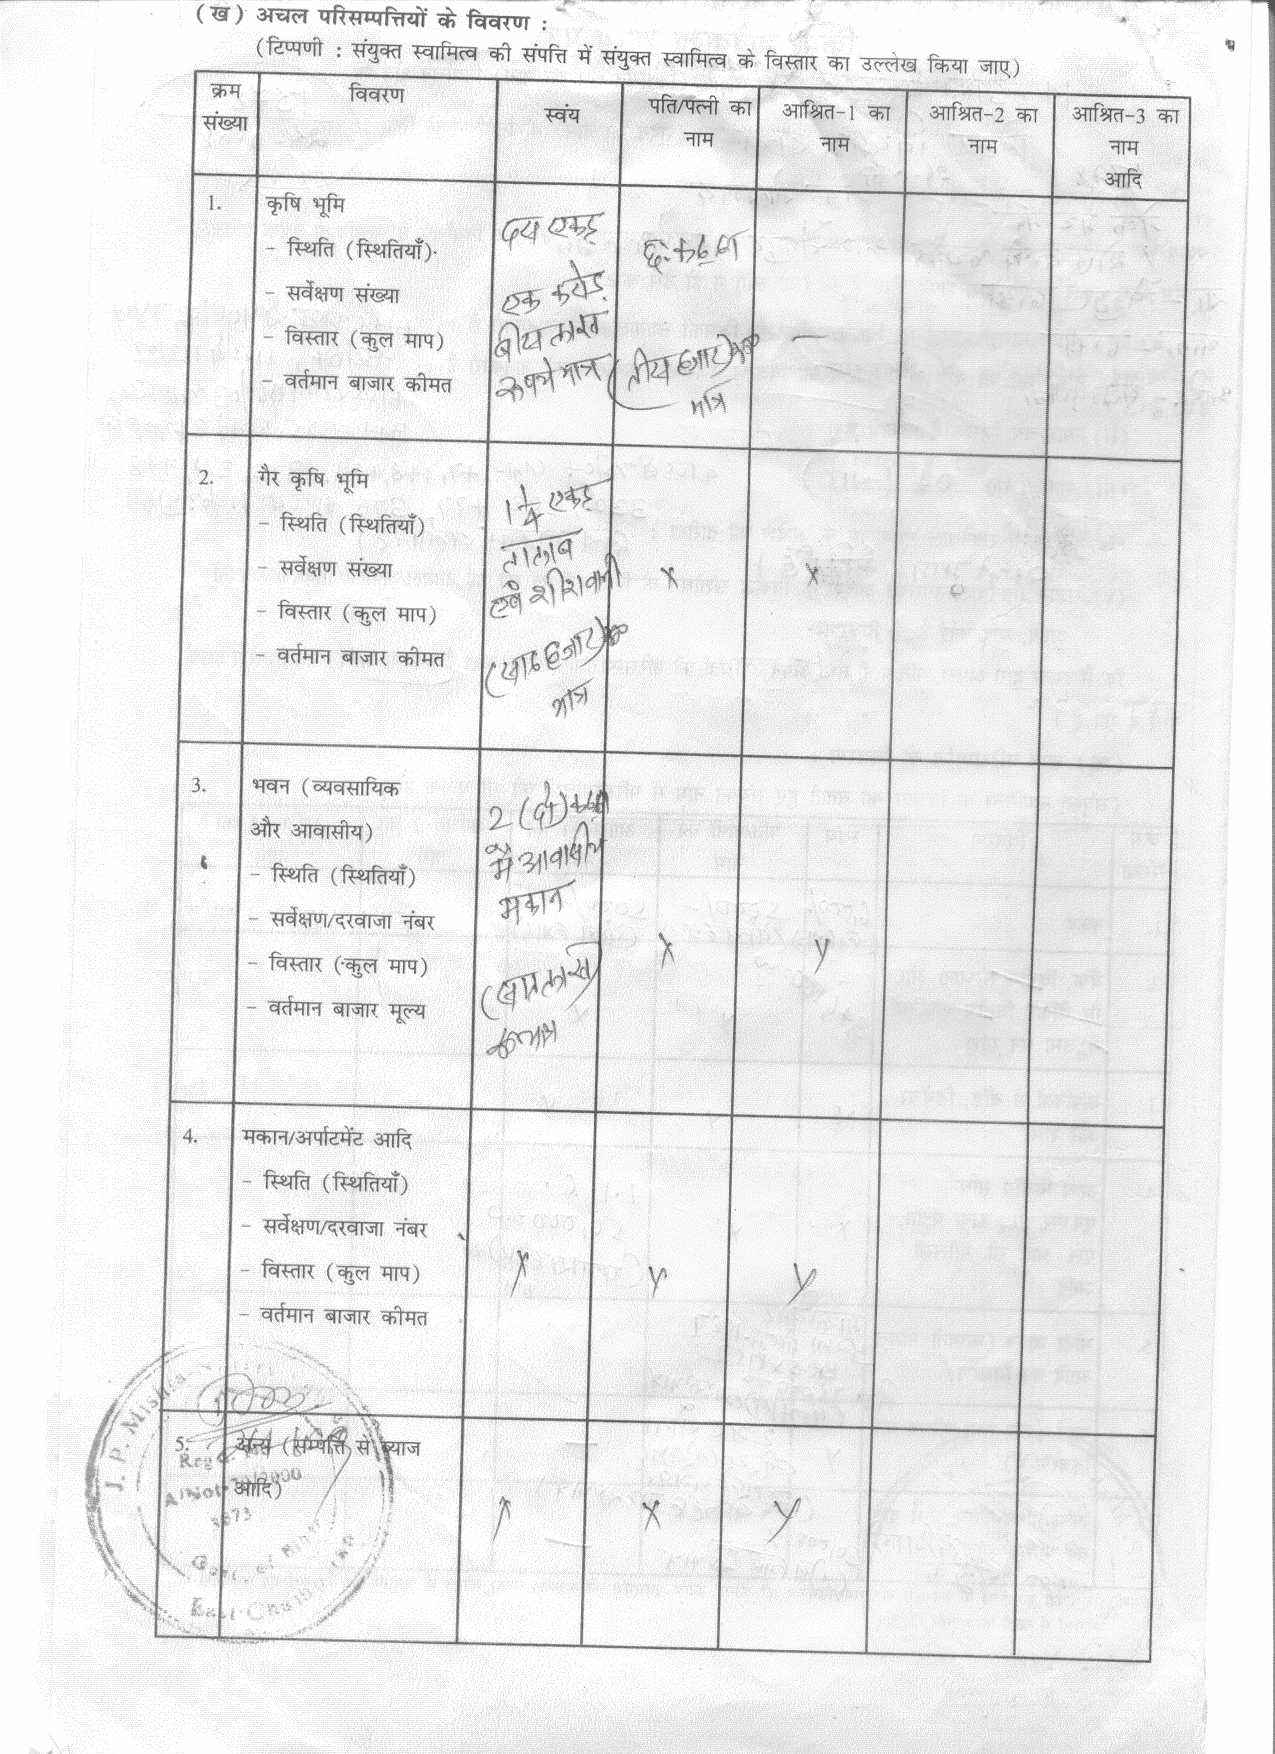 (ख) अचल परिसम्पत्तियों के विवरण :
(टिप्पणी : संयुक्त स्वामित्व की संपत्ति में संयुक्त स्वामित्व के विस्तार का उल्लेख किया जाए)
क्रम संख्या
विवरण
स्वंय
पति/पत्नी का नाम
आश्रित-1 का नाम
आश्रित-2 का नाम
आश्रित-3 का नाम आदि
1.
कृषि भूमि
- स्थिति (स्थितियाँ)
- सर्वेक्षण संख्या
- विस्तार (कुल माप)
- वर्तमान बाजार कीमत
दस एकड़
एक करोड़
बीस लाख
रूपये मात्र
छः कट्ठा
(तीस हजार)
मात्र
2.
गैर कृषि भूमि
- स्थिति (स्थितियाँ)
- सर्वेक्षण संख्या
- विस्तार (कुल माप)
- वर्तमान बाजार कीमत
1 1/4 एकड़
तालाब
एवं
(साठ हजार)
मात्र
x
x
3.
भवन (व्यवसायिक
और आवासीय)
- स्थिति (स्थितियाँ)
- सर्वेक्षण/दरवाजा नंबर
- विस्तार (कुल माप)
- वर्तमान बाजार मूल्य
2 (दो)
में आवासीय
मकान
x
4.
मकान/अर्पाटमेंट आदि
- स्थिति (स्थितियाँ)
- सर्वेक्षण/दरवाजा नंबर
- विस्तार (कुल माप)
- वर्तमान बाजार कीमत
x
5.
अन्य (सम्पत्ति से ब्याज
आदि)
x
J. P. Mishra
Govt. of Bihar